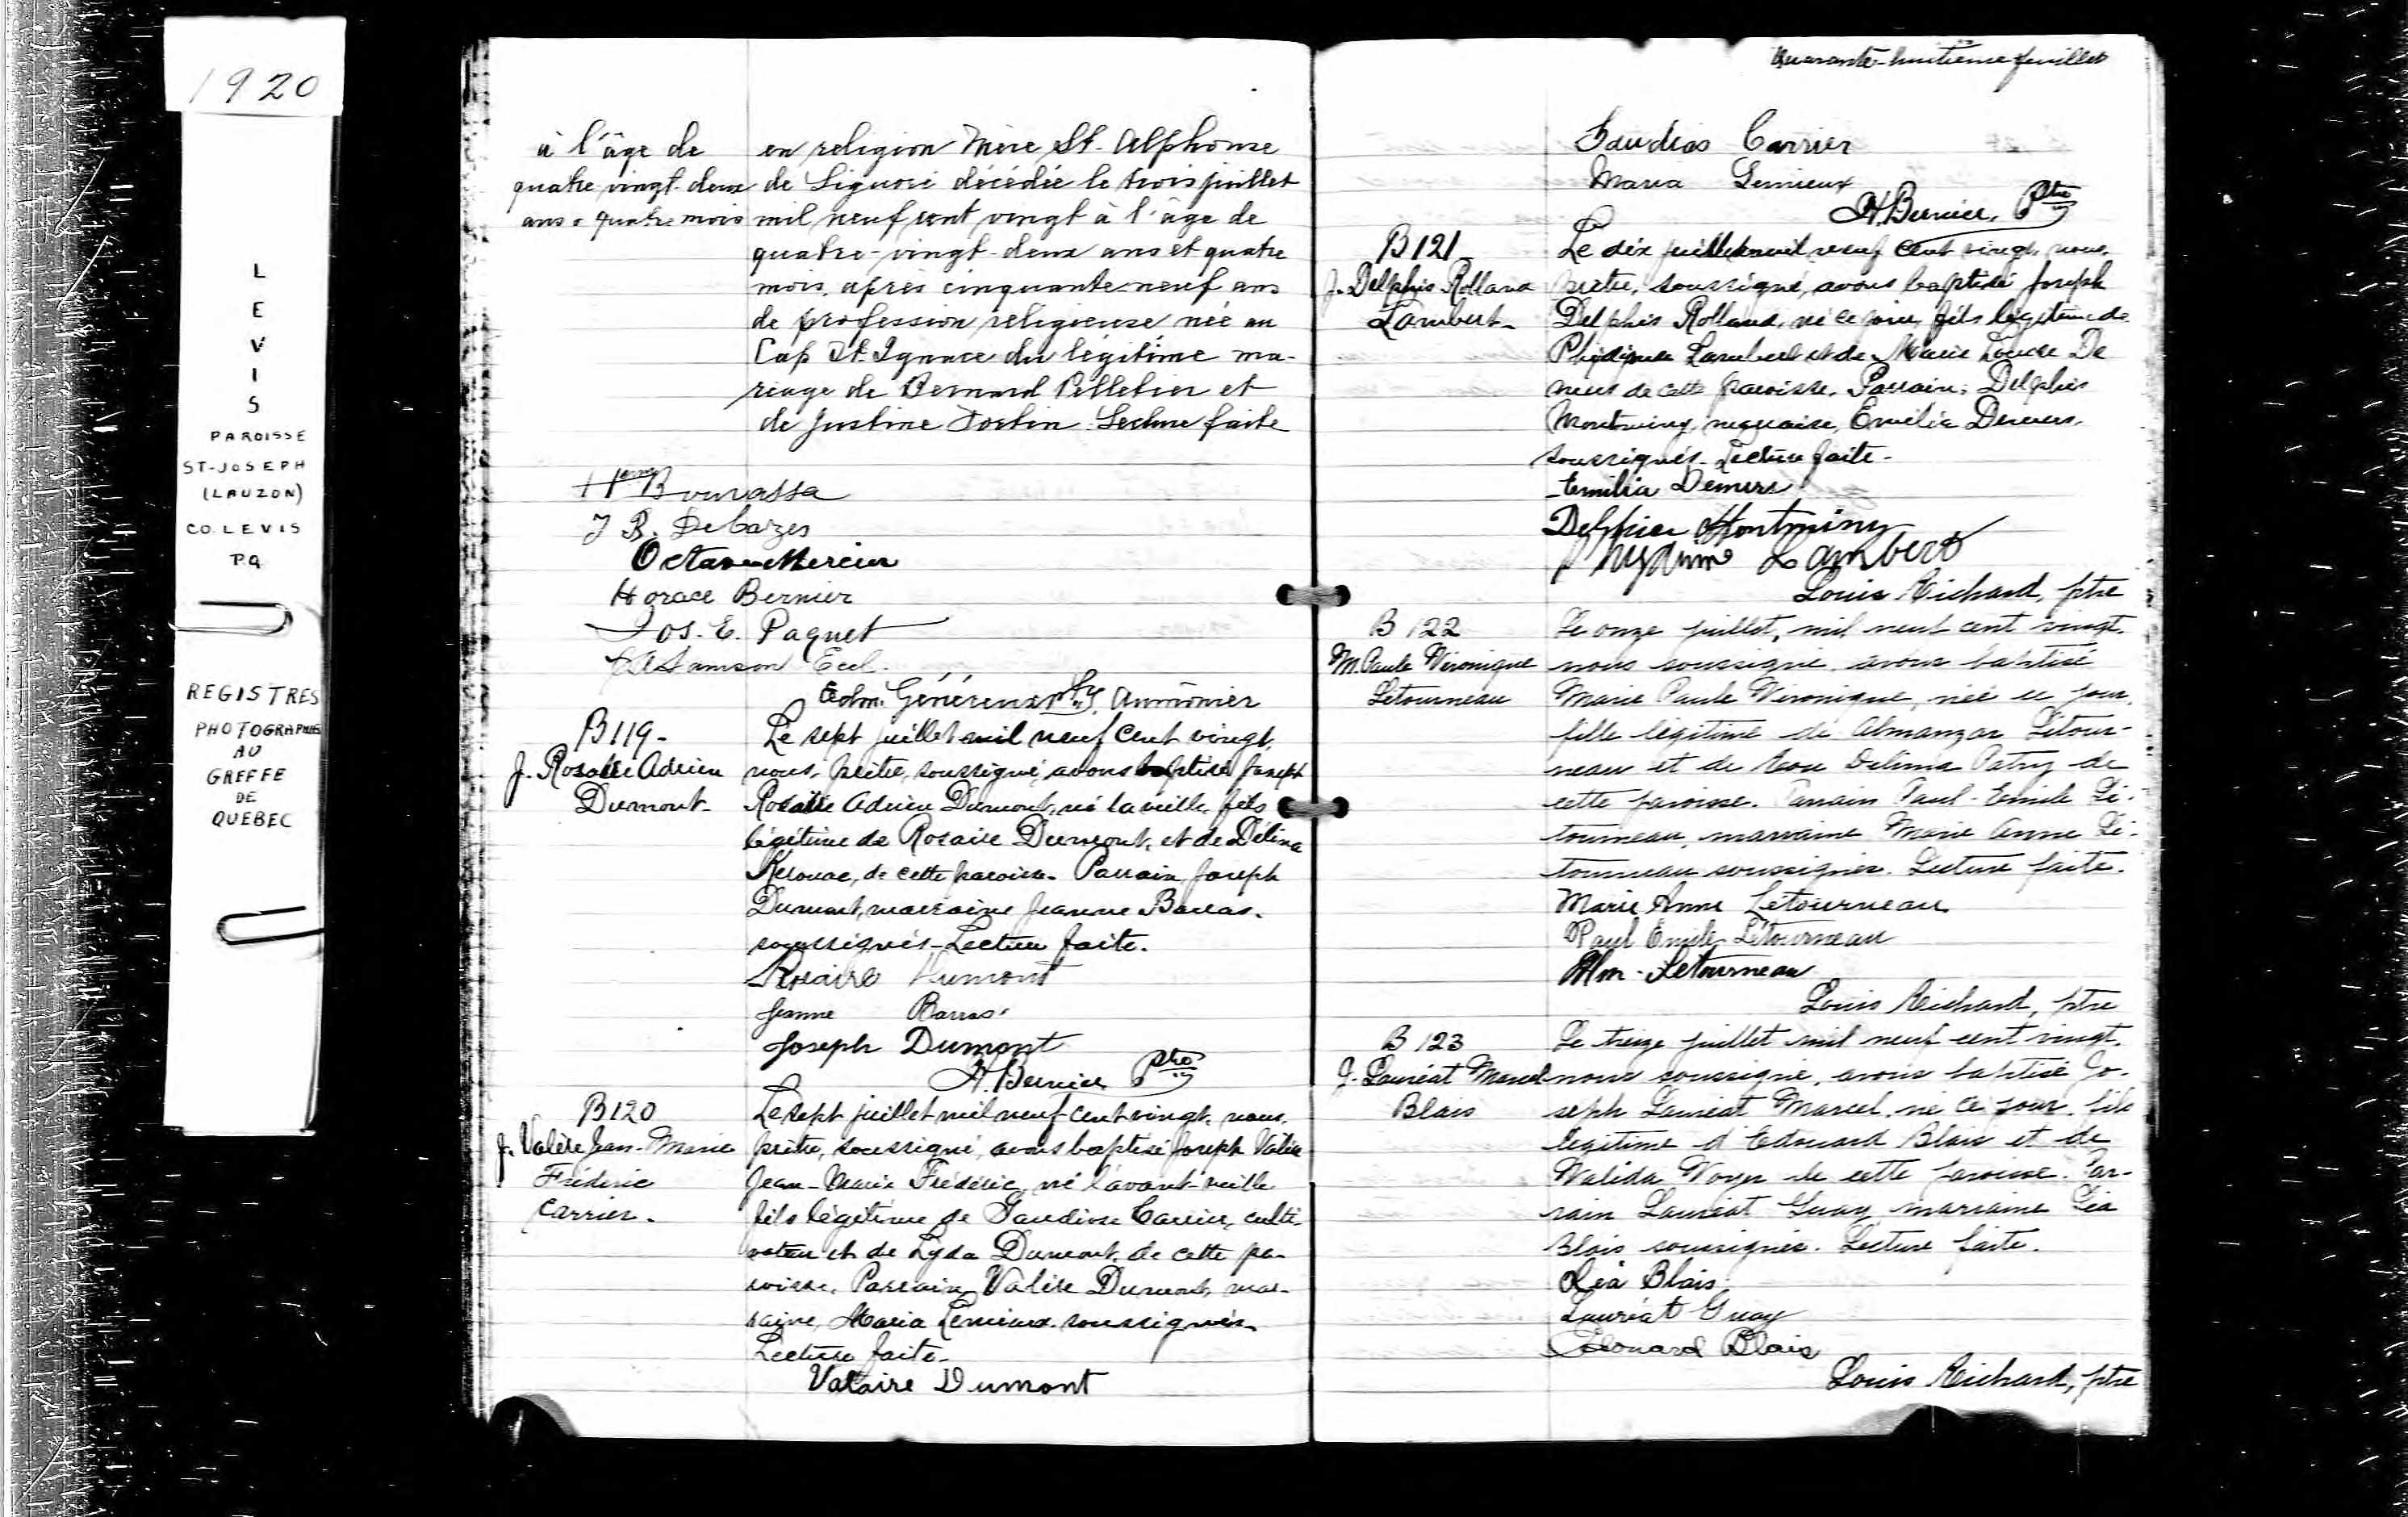 1920
L
E
V
I
S
PAROISSE
ST-JOSEPH
(LAUZON)
CO. LEVIS
P.Q.
REGISTRES
PHOTOGRAPHIES
AU
GREFFE
DE
QUEBEC
à l'âge de
quatre vingt-deux
ans & quatre mois
en religion Mère St. Alphonse
de Liguori décédée le trois juillet
mil neuf cent vingt à l'âge de
quatre-vingt-deux ans et quatre
mois, après cinquante-neuf ans
de profession religieuse née au
Cap St. Ignace du légitime ma-
riage de Bernard Pelletier et
de Justine Fortin. Lecture faite
Bourassa
J. B. DeCazes
Octave Mercier
Horace Bernier
Jos. E. Paquet
Samson Eccl.
Généreux ptre. Aumônier
B 119-
J. Rosaire Adrien
Dumont-
Le sept juillet mil neuf cent vingt,
nous, prêtre, soussigné, avons baptisé Joseph
Rosaire Adrien Dumont, né la veille, fils
légitime de Rosaire Dumont, et de Délina
Kérouac, de cette paroisse. Parrain Joseph
Dumont, marraine Jeanne Barras.
soussignés-Lecture faite.
Rosaire Dumont
Jeanne Barras
Joseph Dumont
H. Bernier Ptre
B 120
J. Valère Jean-Marie
Frédéric
Carrier.
Le sept juillet mil neuf cent vingt, nous,
prêtre, soussigné, avons baptisé Joseph Valère
Jean-Marie Frédéric, né l'avant-veille
fils légitime de Gaudiose Carrier, culti-
vateur et de Lyda Dumont, de cette pa-
roisse. Parrain Valère Dumont, mar-
raine, Maria Lemieux. soussignés
Lecture faite-
Valaire Dumont
Quarante-huitième feuillet
Gaudias Carrier
Maria Lemieux
H. Bernier, Ptre
B 121
J. Delphis Rolland
Lambert-
Le dix juillet mil neuf cent vingt, nous,
prêtre, soussigné, avons baptisé Joseph
Delphis Rolland, né ce jour, fils légitime de
Phydime Lambert et de Marie Louise De
mers de cette paroisse. Parrain, Delphis
Montminy, marraine, Emilia Demers,
soussignés-Lecture faite-
Emilia Demers
Delphis Montminy
Phydime Lambert
Louis Richard, ptre
B 122
M. Paule Véronique
Letourneau
Le onze juillet, mil neuf cent vingt.
nous soussigné, avons baptisé
Marie Paule Véronique, née ce jour,
fille légitime de Almanzar Létour-
neau et de Délima Patry de
cette paroisse. Parrain Paul-Emile Lé-
tourneau, marraine Marie Anne Lé-
tourneau soussignés. Lecture faite.
Marie Anne Letourneau
Paul Emile Létourneau
Alm. Letourneau
Louis Richard, ptre
B 123
J. Lauréat Marcel
Blais
Le treize juillet mil neuf cent vingt.
nous soussigné, avons baptisé Jo-
seph Lauréat Marcel, né ce jour, fils
légitime d'Edouard Blais et de
Valida Voyer de cette paroisse. Par-
rain Lauréat Guay marraine Léa
Blais soussignés. Lecture faite.
Léa Blais
Lauréat Guay
Edouard Blais
Louis Richard, ptre